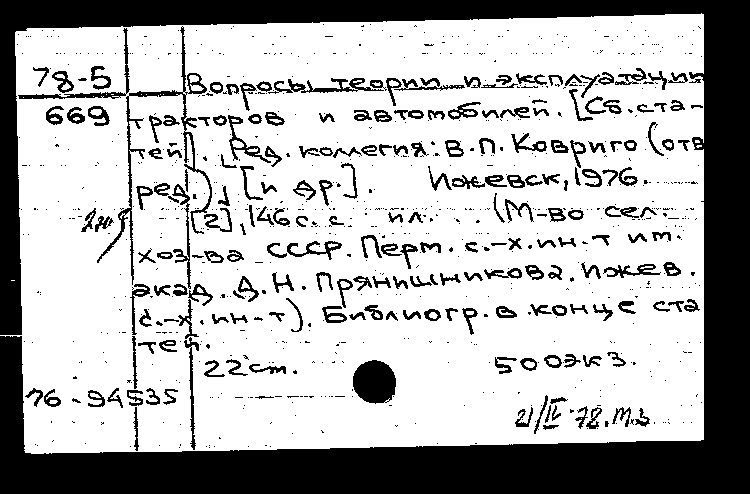 78-5 Вопросы теории и эксплуатации
669 тракторов и автомобилей. [Сб. ста-
тей]. [Ред. коллегия: В.П. Ковриго (отв
ред.), [и др.]. Ижевск, 1976.
[2], 146 с. с ил. (М-во сел.
хоз-ва СССР. Перм. с.-х. ин-т им.
акад. Д.Н. Прянишникова. Ижев.
с.-х. ин-т). Библиогр. в конце ста
тей.
22 см. 500 экз.
76-94535
21/IV-78.